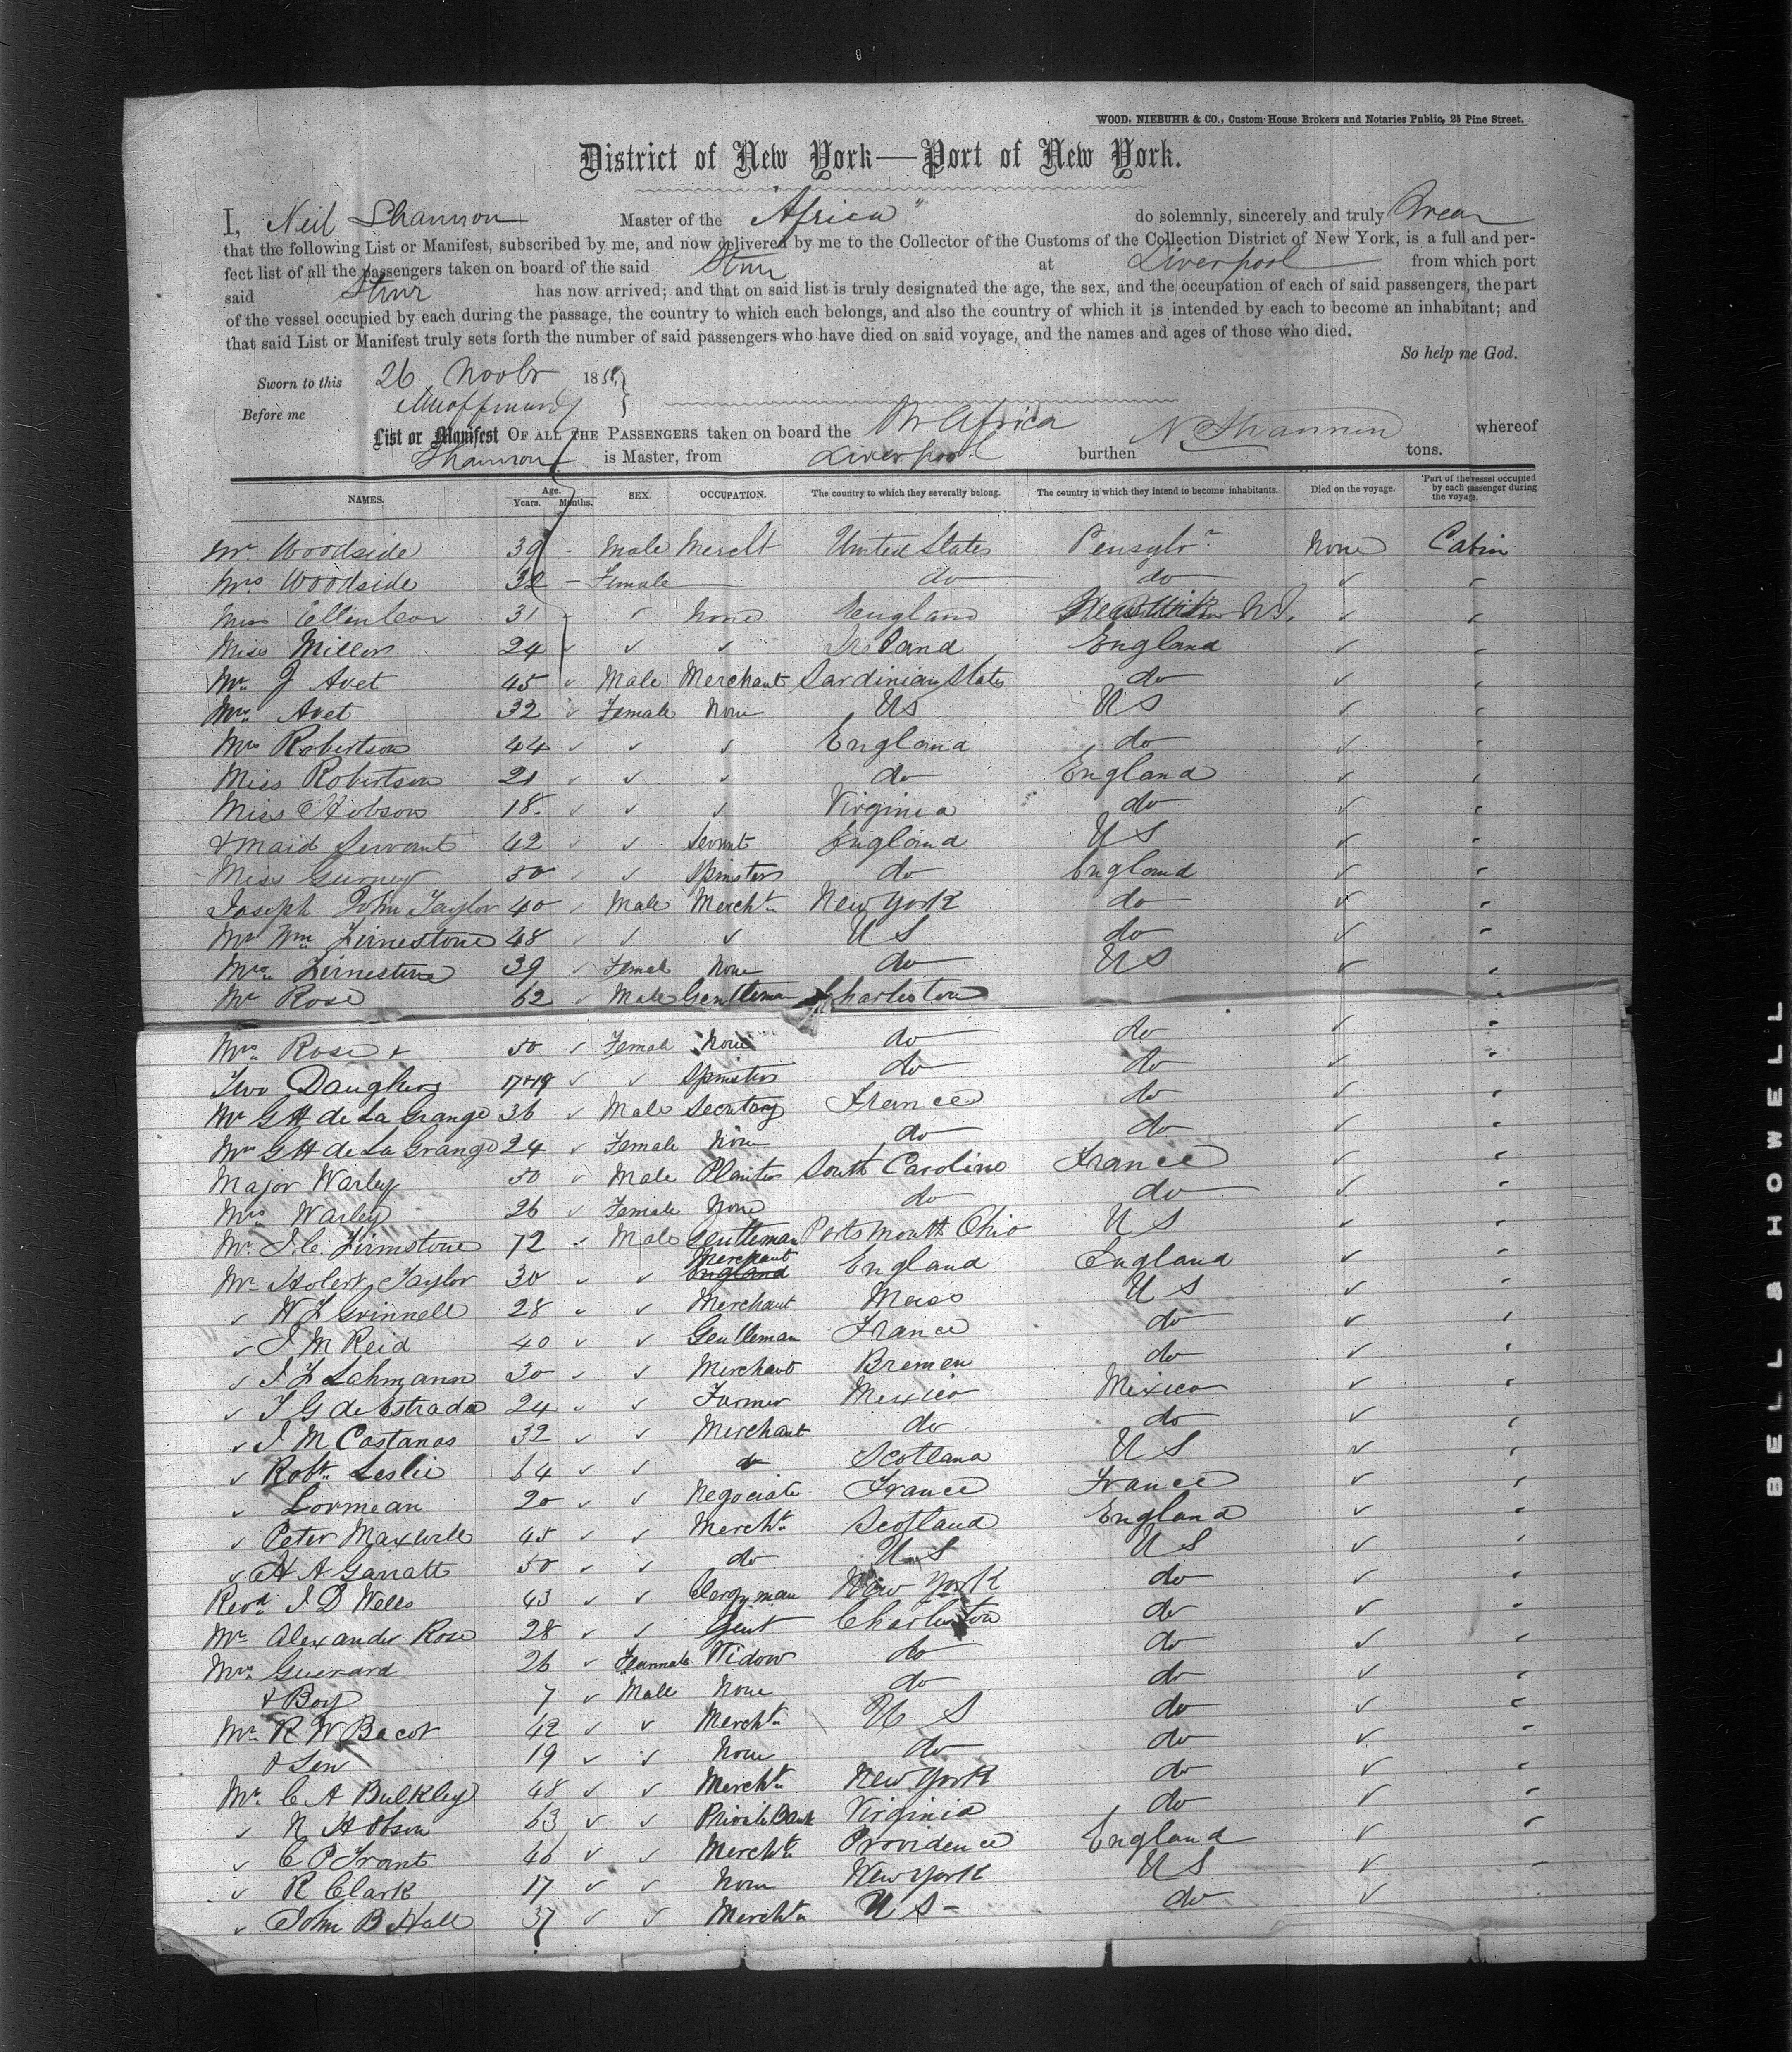 WOOD, NIEBUHR & CO., Custom House Brokers and Notaries Public, 25 Pine Street.
District of New York—Port of New York.
I, Neil Shannon Master of the "Africa" do solemnly, sincerely and truly Swear
that the following List or Manifest, subscribed by me, and now delivered by me to the Collector of the Customs of the Collection District of New York, is a full and per-
fect list of all the passengers taken on board of the said Stmr at Liverpool from which port
said Stmr has now arrived; and that on said list is truly designated the age, the sex, and the occupation of each of said passengers, the part
of the vessel occupied by each during the passage, the country to which each belongs, and also the country of which it is intended by each to become an inhabitant; and
that said List or Manifest truly sets forth the number of said passengers who have died on said voyage, and the names and ages of those who died.
So help me God.
Sworn to this 26 Novbr 185
Before me
List or Manifest OF ALL THE PASSENGERS taken on board the Africa N. Shannon whereof
Shannon is Master, from Liverpool burthen tons.
NAMES. Age. Years. Months. SEX. OCCUPATION. The country to which they severally belong. The country in which they intend to become inhabitants. Died on the voyage. Part of the vessel occupied by each passenger during the voyage.
Mr Woodside 39 - Male Mercht United States Pensylv None Cabin
Mrs Woodside 32 - Female do do ✓ "
Miss Ellen Cox 31 ✓ None England N.J. ✓ "
Miss Miller 24 ✓ ✓ ✓ Ireland England ✓ "
Mr. J Avet 45 ✓ Male Merchant Sardinian States do ✓ "
Mrs. Avet 32 ✓ Female None US US ✓ "
Mrs Robertson 44 ✓ ✓ ✓ England do ✓ "
Miss Robertson 21 ✓ ✓ ✓ do England ✓ "
Miss Hobson 18. ✓ ✓ ✓ Virginia do ✓ "
& Maid Servant 42 ✓ ✓ Servnt England US ✓ "
Miss Gurney 50 ✓ ✓ Spinster do England ✓ "
Joseph John Taylor 40 ✓ Male Mercht New York do ✓ "
Mr Wm Firnestone 48 ✓ ✓ ✓ US do ✓ "
Mrs. Firnestone 39 ✓ Female None do US ✓ "
Mr Rose 62 ✓ Male Gentleman Charleston "
Mrs. Rose & 50 ✓ Female None do do ✓ "
Two Daughters 17 & 19 ✓ ✓ Spinsters do do ✓ "
Mr G H de La Grange 36 ✓ Male Secretary France do ✓ "
Mrs G H de La Grange 24 ✓ Female None do do ✓ "
Major Warley 50 ✓ Male Planter South Carolina France ✓ "
Mrs Warley 26 ✓ Female None do do ✓ "
Mr. J. C. Firmstone 72 ✓ Male Gentleman Portsmouth Ohio US ✓ "
Mr Hobert Taylor 30 ✓ ✓ England Merchant England England ✓ "
✓ W F Grinnell 28 ✓ ✓ Merchant Mass US ✓ "
✓ J M Reid 40 ✓ ✓ Gentleman France do ✓ "
✓ J F Lahmann 30 ✓ ✓ Merchant Bremen do ✓ "
✓ F G de Estrada 24 ✓ ✓ Farmer Mexico Mexico ✓ "
✓ J M Castanos 32 ✓ ✓ Merchant do do ✓ "
✓ Robt. Leslie 64 ✓ ✓ do Scotland US ✓ "
✓ Lormean 20 ✓ ✓ Negociate France France ✓ "
✓ Peter Maxwell 45 ✓ ✓ Mercht Scotland England ✓ "
✓ H A Garratt 50 ✓ ✓ do US US ✓ "
Revd. J D Wells 43 ✓ ✓ Clergyman New York do ✓ "
Mr Alexander Rose 28 ✓ ✓ Gent Charleston do ✓ "
Mrs. Guerard 26 ✓ Female Widow do do ✓ "
& Boy 7 ✓ Male None do do ✓ "
Mr. R W Bacot 42 ✓ ✓ Mercht US do ✓ "
& Son 19 ✓ ✓ None do do ✓ "
Mr. C A Bulkley 48 ✓ ✓ Mercht New York do ✓ "
✓ N Hobson 63 ✓ ✓ Private Bank Virginia do ✓ "
✓ C P Frant 40 ✓ ✓ Mercht Providence England ✓ "
✓ R Clark 17 ✓ ✓ None New York US ✓ -
✓ John B Hall 37 ✓ ✓ Mercht US - do ✓
BELL & HOWELL